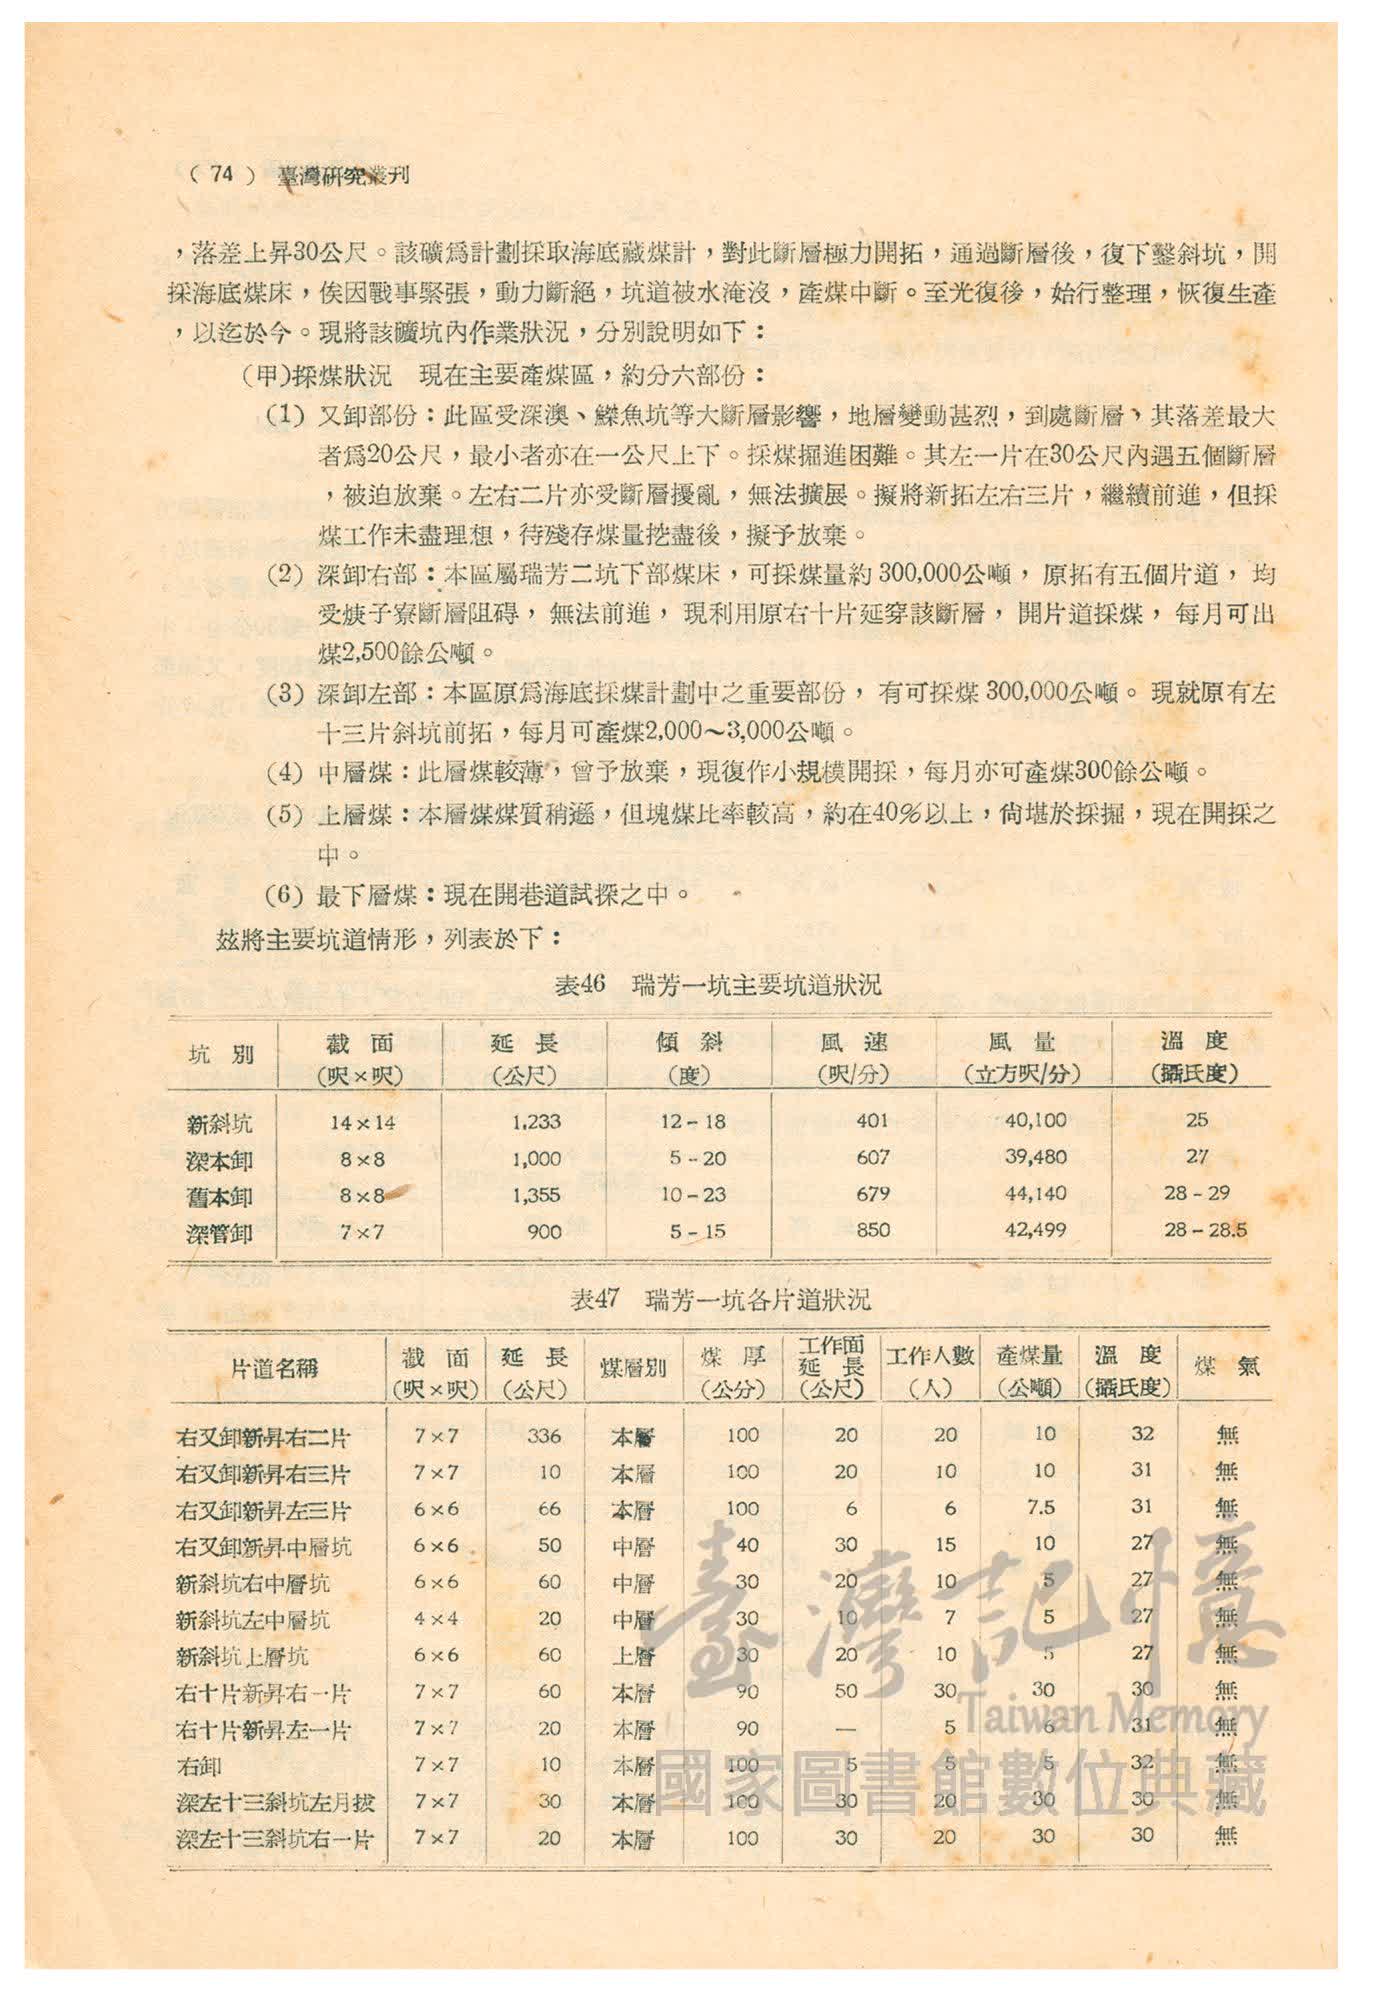 ( 74 ) 臺灣研究叢刊
，落差上昇30公尺。該礦爲計劃採取海底藏煤計，對此斷層極力開拓，通過斷層後，復下鑿斜坑，開
採海底煤床，俟因戰事緊張，動力斷絕，坑道被水淹沒，產煤中斷。至光復後，始行整理，恢復生產
，以迄於今。現將該礦坑內作業狀況，分別說明如下：
(甲)採煤狀況　現在主要產煤區，約分六部份：
(1) 又卸部份：此區受深澳、鰈魚坑等大斷層影響，地層變動甚烈，到處斷層、其落差最大
者爲20公尺，最小者亦在一公尺上下。採煤掘進困難。其左一片在30公尺內遇五個斷層
，被迫放棄。左右二片亦受斷層擾亂，無法擴展。擬將新拓左右三片，繼續前進，但採
煤工作未盡理想，待殘存煤量挖盡後，擬予放棄。
(2) 深卸右部：本區屬瑞芳二坑下部煤床，可採煤量約 300,000公噸， 原拓有五個片道， 均
受焿子寮斷層阻碍， 無法前進， 現利用原右十片延穿該斷層， 開片道採煤， 每月可出
煤2,500餘公噸。
(3) 深卸左部：本區原爲海底採煤計劃中之重要部份， 有可採煤 300,000公噸。 現就原有左
十三片斜坑前拓，每月可產煤2,000～3,000公噸。
(4) 中層煤：此層煤較薄，曾予放棄，現復作小規模開採，每月亦可產煤300餘公噸。
(5) 上層煤：本層煤煤質稍遜，但塊煤比率較高，約在40%以上，尙堪於採掘，現在開採之
中。
(6) 最下層煤：現在開巷道試探之中。
茲將主要坑道情形，列表於下：
表46　瑞芳一坑主要坑道狀況
坑別 截面 延長 傾斜 風速 風量 溫度
(呎×呎) (公尺) (度) (呎/分) (立方呎/分) (攝氏度)
新斜坑 14×14 1,233 12－18 401 40,100 25
深本卸 8×8 1,000 5－20 607 39,480 27
舊本卸 8×8 1,355 10－23 679 44,140 28－29
深管卸 7×7 900 5－15 850 42,499 28－28.5
表47　瑞芳一坑各片道狀況
片道名稱 截面 延長 煤層別 煤厚 工作面延長 工作人數 產煤量 溫度 煤氣
(呎×呎) (公尺) (公分) (公尺) (人) (公噸) (攝氏度)
右又卸新昇右二片 7×7 336 本層 100 20 20 10 32 無
右又卸新昇右三片 7×7 10 本層 100 20 10 10 31 無
右又卸新昇左三片 6×6 66 本層 100 6 6 7.5 31 無
右又卸新昇中層坑 6×6 50 中層 40 30 15 10 27 無
新斜坑右中層坑 6×6 60 中層 30 20 10 5 27 無
新斜坑左中層坑 4×4 20 中層 30 10 7 5 27 無
新斜坑上層坑 6×6 60 上層 30 20 10 5 27 無
右十片新昇右一片 7×7 60 本層 90 50 30 30 30 無
右十片新昇左一片 7×7 20 本層 90 — 5 6 31 無
右卸 7×7 10 本層 100 5 5 5 32 無
深左十三斜坑左月拔 7×7 30 本層 100 30 20 30 30 無
深左十三斜坑右一片 7×7 20 本層 100 30 20 30 30 無
臺灣記憶
Taiwan Memory
國家圖書館數位典藏